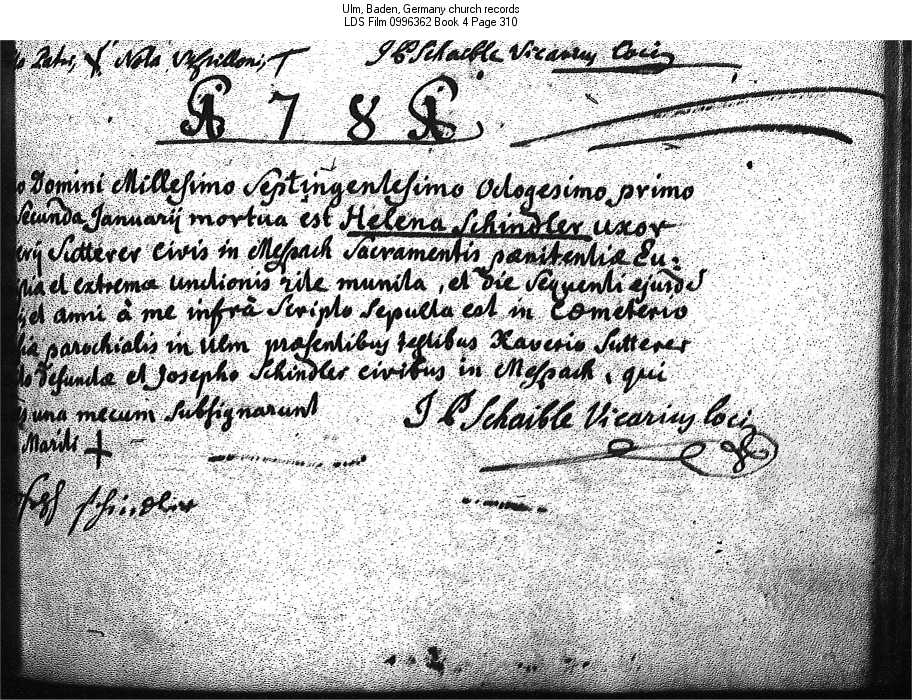 Ulm, Baden, Germany church records
LDS Film 0996362 Book 4 Page 310
Nota J P Schaible Vicarius Loci
1781
o Domini Millesimo Septingentesimo Octogesimo primo
Secunda Januarij mortua est Helena Schindler uxor
erij Sutterer civis in Mespach Sacramentis pænitentiæ Eu:
tia et extremæ unctionis rite munita, et die sequenti ejusd
et anni à me infrà scripto sepulta est in Cœmeterio
parochialis in Ulm præsentibus testibus Xaverio Sutterer
to defunctæ et Josepho Schindler civibus in Mespach, qui
una mecum subsignarunt J P Schaible Vicarius Loci
Mariti +
schindler